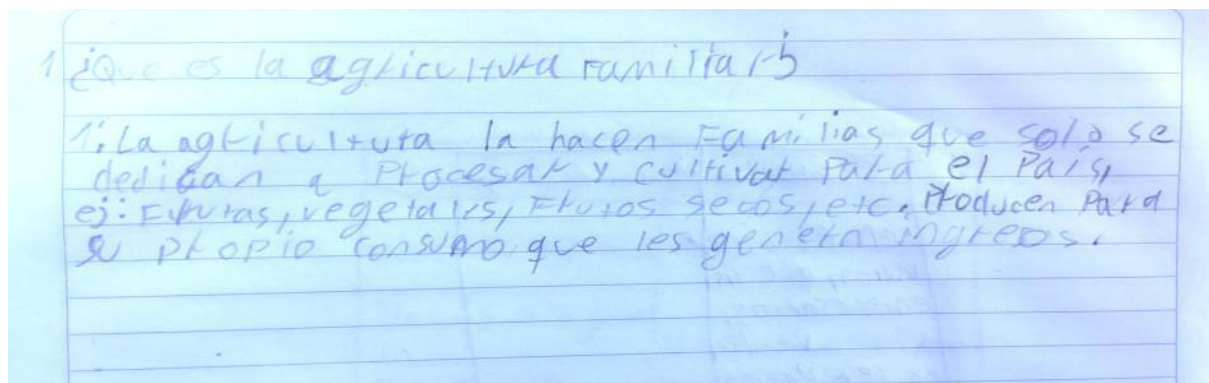 1 ¿Que es la agricultura familiar?
1: La agricultura la hacen Familias que solo se
dedican a Procesar y cultivar Para el País,
ej: Frutas, vegetales, Frutos secos, etc. Producen Para
su propio consumo que les genera ingresos.